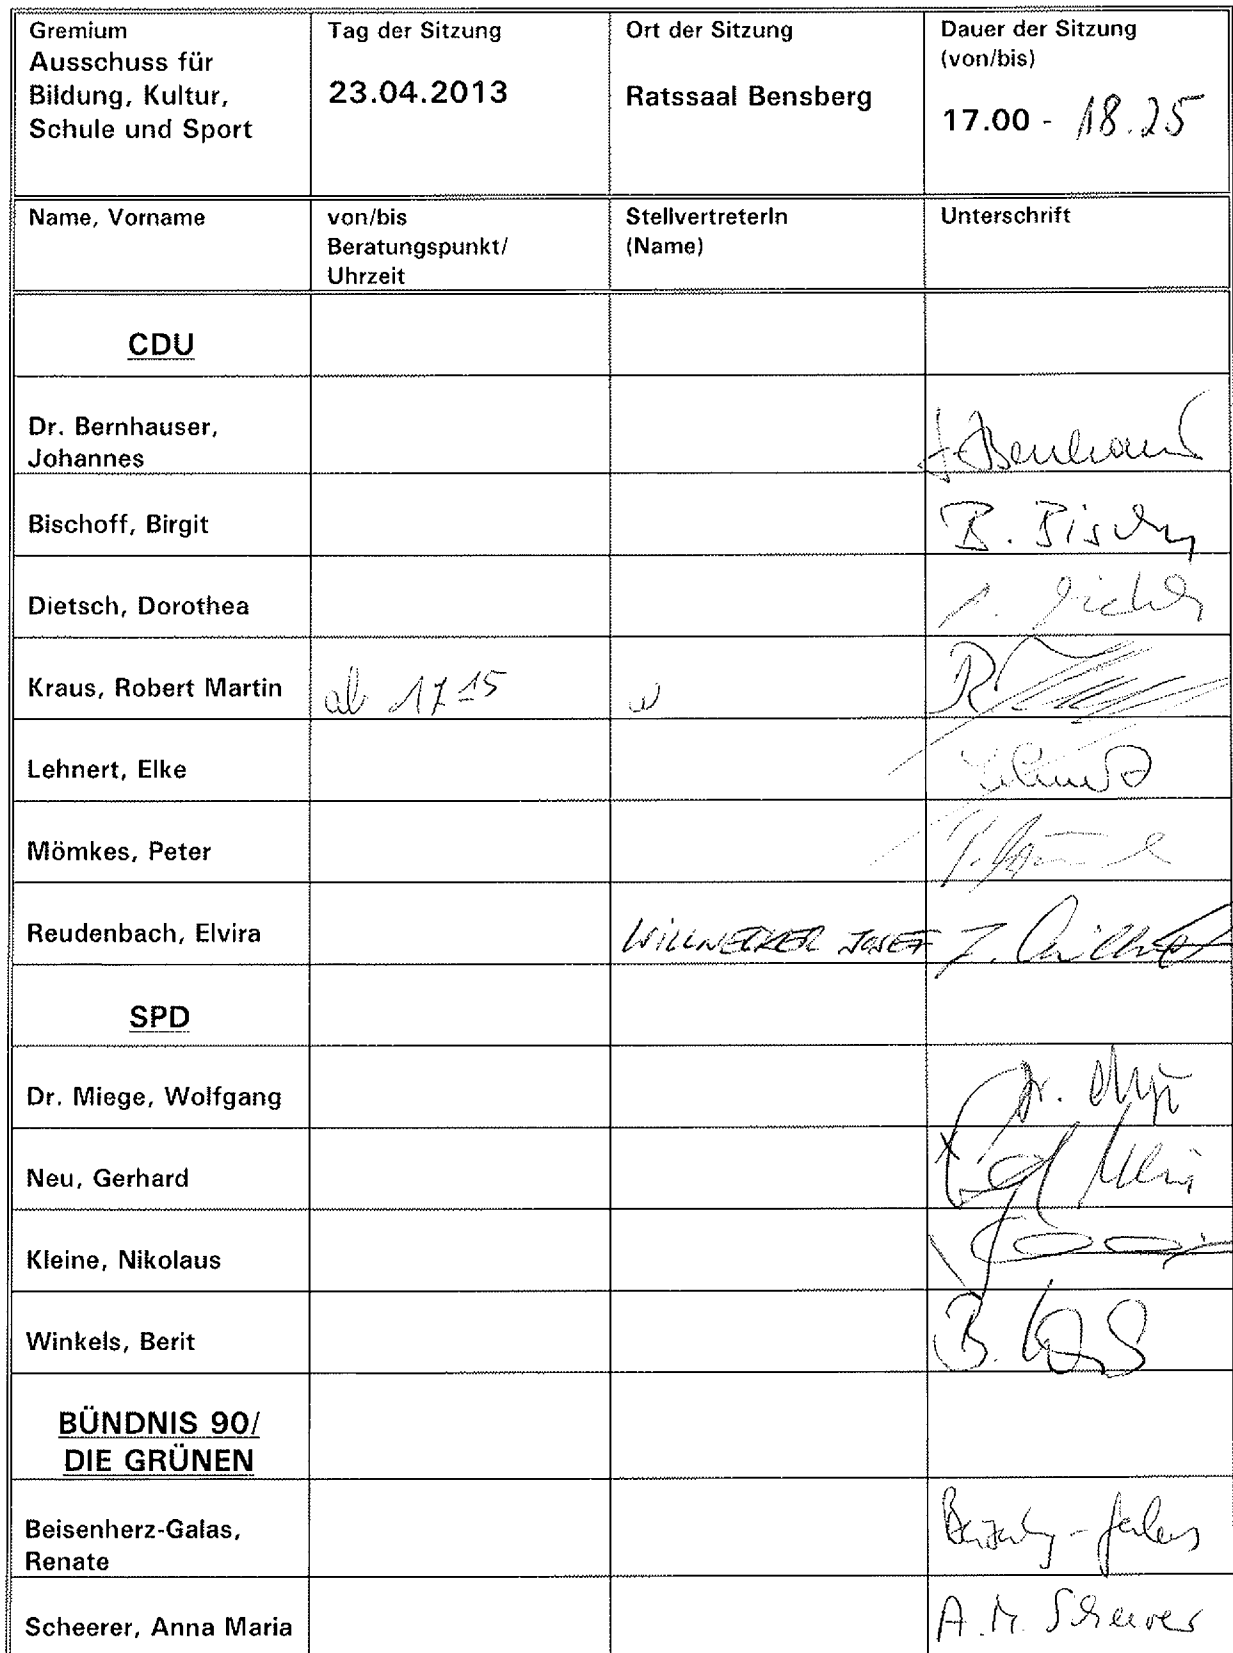 Gremium
Ausschuss für
Bildung, Kultur,
Schule und Sport
Tag der Sitzung
23.04.2013
Ort der Sitzung
Ratssaal Bensberg
Dauer der Sitzung
(von/bis)
17.00 - 18.25
Name, Vorname
von/bis
Beratungspunkt/
Uhrzeit
StellvertreterIn
(Name)
Unterschrift
CDU
Dr. Bernhauser,
Johannes
Bischoff, Birgit
B. Bisch
Dietsch, Dorothea
Kraus, Robert Martin
ab 17 15
Lehnert, Elke
Mömkes, Peter
Reudenbach, Elvira
WILLNECKER JOSEF
SPD
Dr. Miege, Wolfgang
Dr. Miege
Neu, Gerhard
Kleine, Nikolaus
Winkels, Berit
BÜNDNIS 90/
DIE GRÜNEN
Beisenherz-Galas,
Renate
Scheerer, Anna Maria
A. M. Scheerer